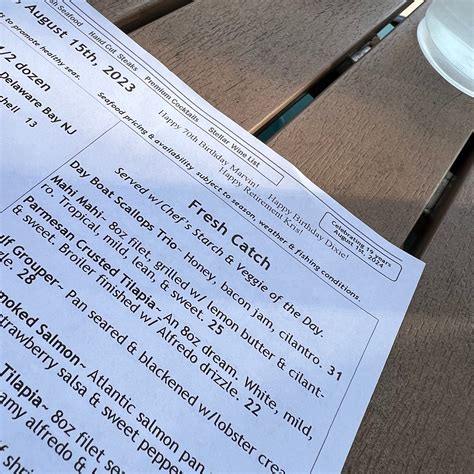 sh Seafood Hand Cut Steaks Premium Cocktails Stellar Wine List
, August 15th, 2023
Happy 70th Birthday Marvin! Happy Birthday Dixie!
Happy Retirement Kris!
Celebrating 19 years
August 1st, 2024
to promote healthy seas.
Seafood pricing & availability subject to season, weather & fishing conditions.
1/2 dozen
Delaware Bay NJ
chell 13
Fresh Catch
Served w/ Chef's Starch & Veggie of the Day.
Day Boat Scallops Trio~ Honey, bacon jam, cilantro. 31
Mahi Mahi~ 8oz filet, grilled w/ lemon butter & cilant-
ro. Tropical, mild, lean, & sweet. 25
Parmesan Crusted Tilapia~ An 8oz dream. White, mild,
& sweet. Broiler finished w/ Alfredo drizzle. 22
lf Grouper~ Pan seared & blackened w/lobster cre
zle. 28
moked Salmon~ Atlantic salmon pan
strawberry salsa & sweet pepper
Tilapia~ 8oz filet se
amy alfredo & v
f shri